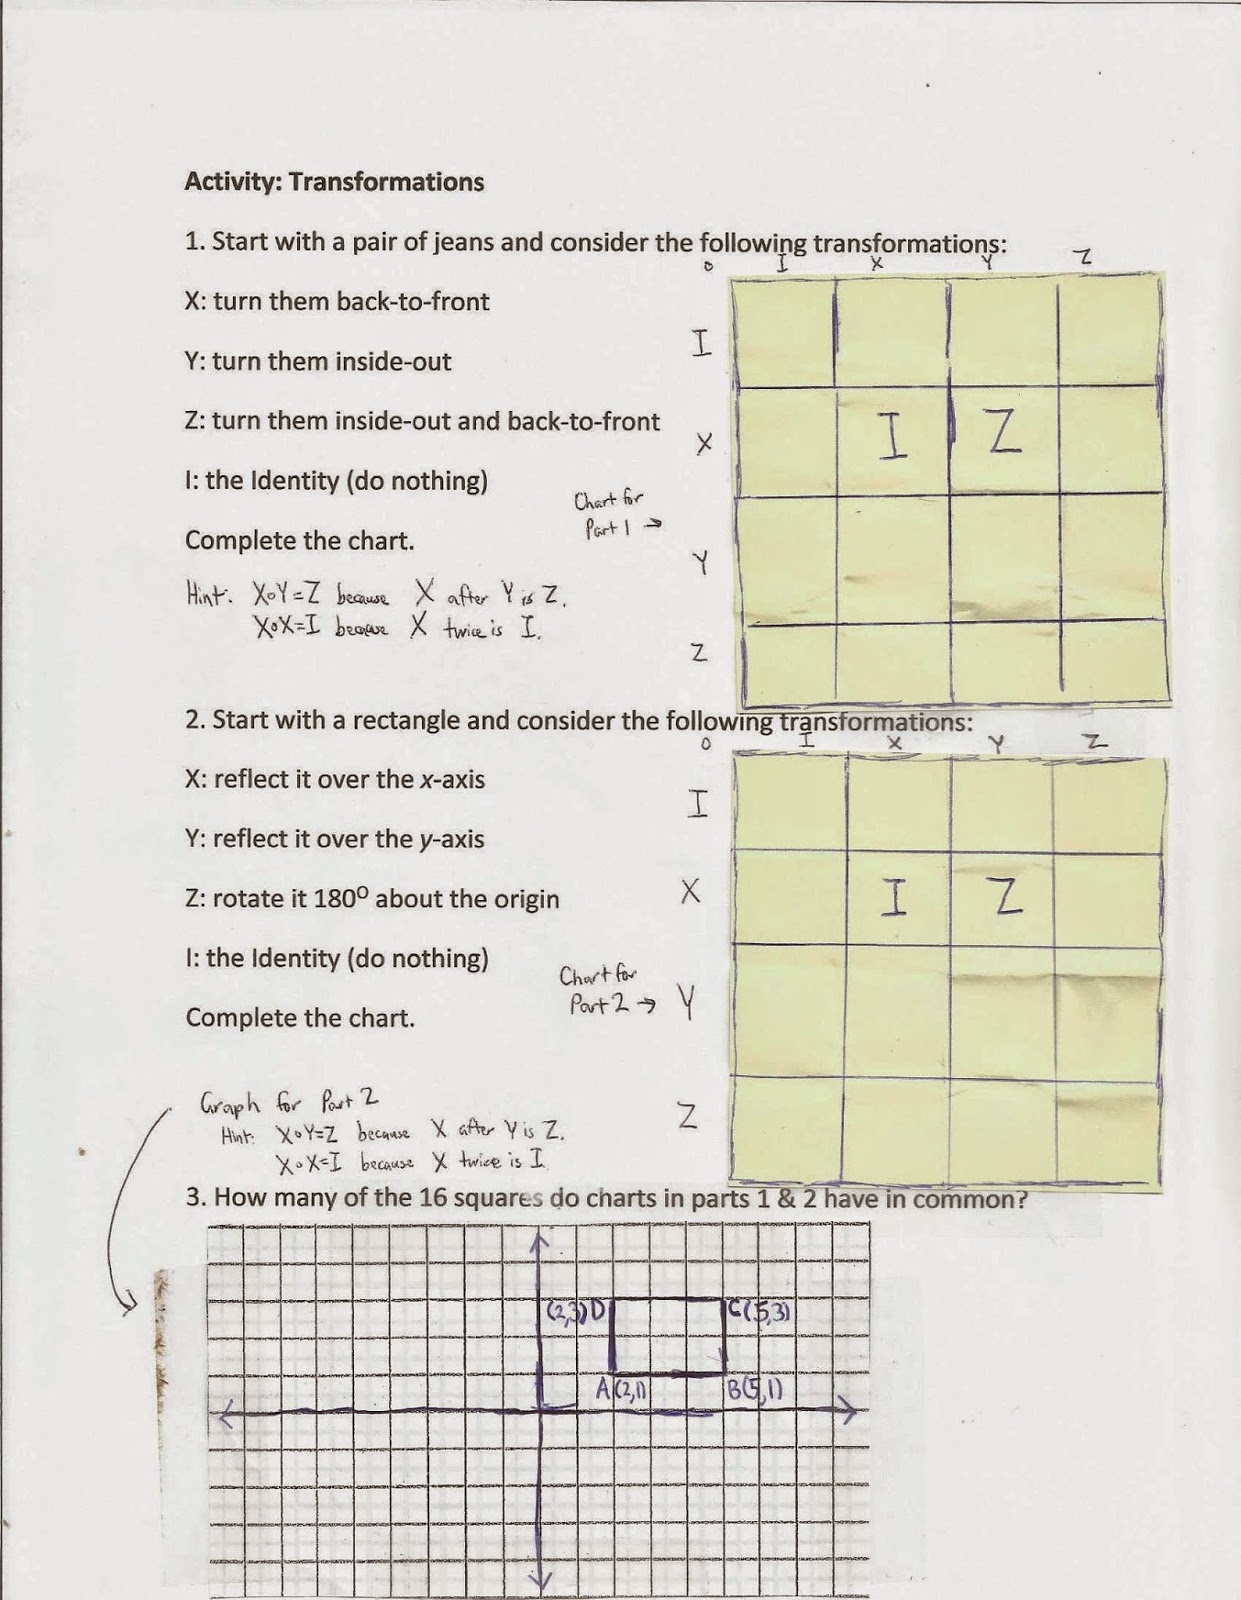 Activity: Transformations
1. Start with a pair of jeans and consider the following transformations:
o I X Y Z
X: turn them back-to-front
I
Y: turn them inside-out
Z: turn them inside-out and back-to-front
X I Z
I: the Identity (do nothing)
Chart for
Part 1 →
Complete the chart.
Y
Hint: X∘Y=Z because X after Y is Z.
X∘X=I because X twice is I.
Z
2. Start with a rectangle and consider the following transformations:
o I X Y Z
X: reflect it over the x-axis
I
Y: reflect it over the y-axis
Z: rotate it 180⁰ about the origin
X I Z
I: the Identity (do nothing)
Chart for
Part 2 → Y
Complete the chart.
Graph for Part 2
Z
Hint: X∘Y=Z because X after Y is Z.
X∘X=I because X twice is I
3. How many of the 16 squares do charts in parts 1 & 2 have in common?
(2,3) D C(5,3)
A (2,1) B(5,1)